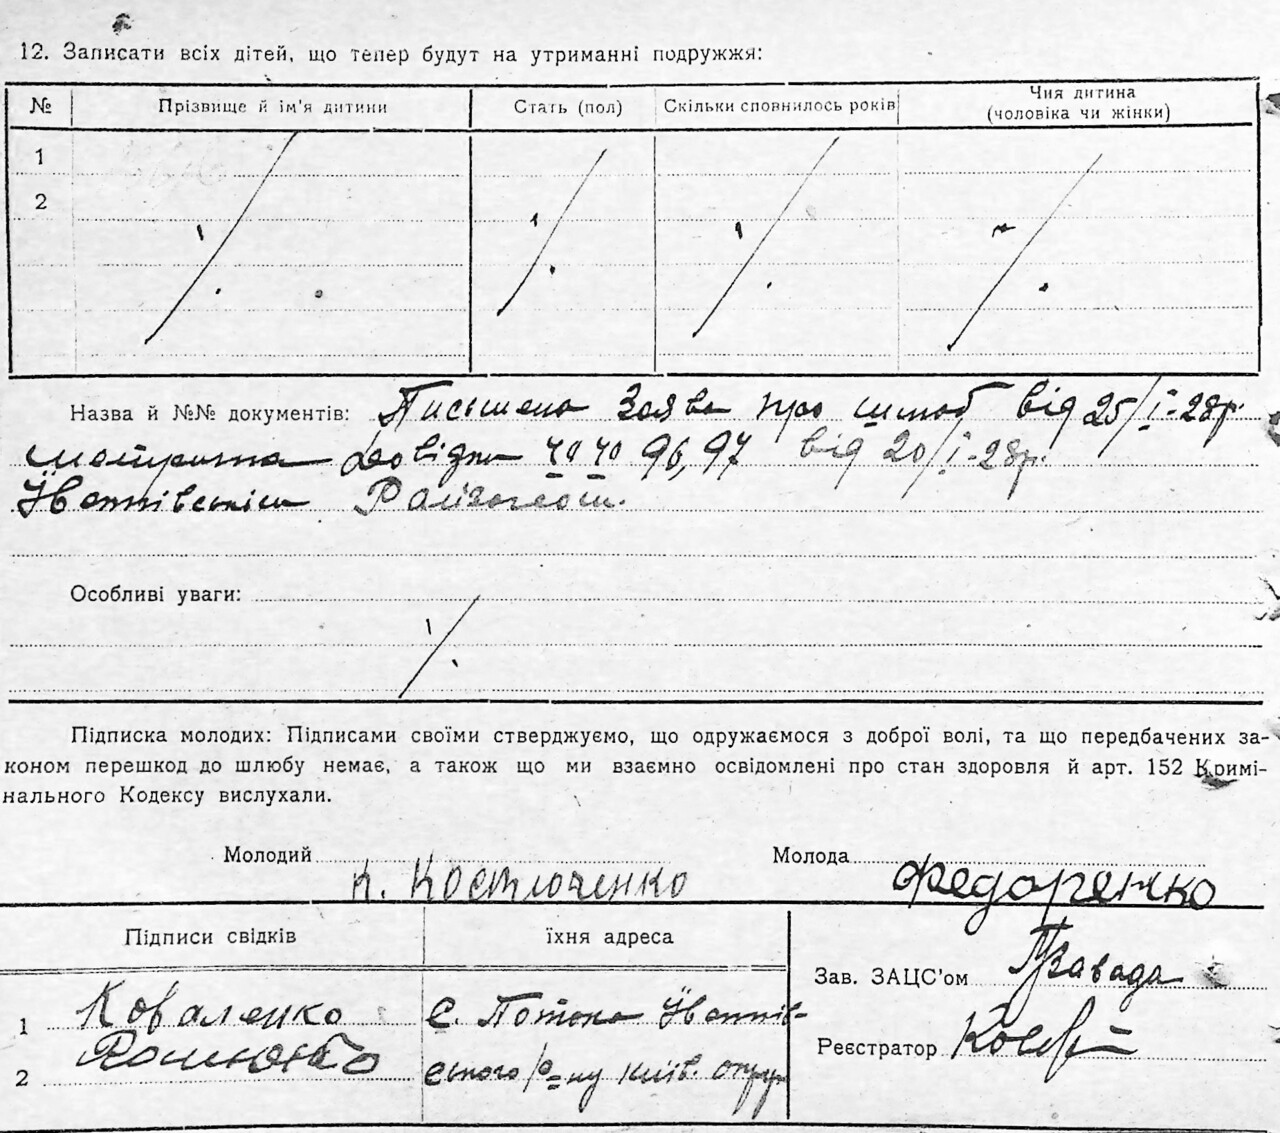 12. Записати всіх дітей, що тепер будут на утриманні подружжя:
№ Прізвище й ім'я дитини Стать (пол) Скільки сповнилось років Чия дитина (чоловіка чи жінки)
1
2
Назва й №№ документів: Письмена Заява про шлюб від 25/I-28р.
довідки №№ 96,97 від 20/I-28р.
Особливі уваги:
Підписка молодих: Підписами своїми стверджуємо, що одружаємося з доброї волі, та що передбачених за-
коном перешкод до шлюбу немає, а також що ми взаємно освідомлені про стан здоровля й арт. 152 Кримі-
нального Кодексу вислухали.
Молодий К. Костюченко Молода Федоренко
Підписи свідків їхня адреса
Зав. ЗАЦС'ом Завада
1 Коваленко с. Потоки
Реєстратор
2 ського р-ну Київ. округ